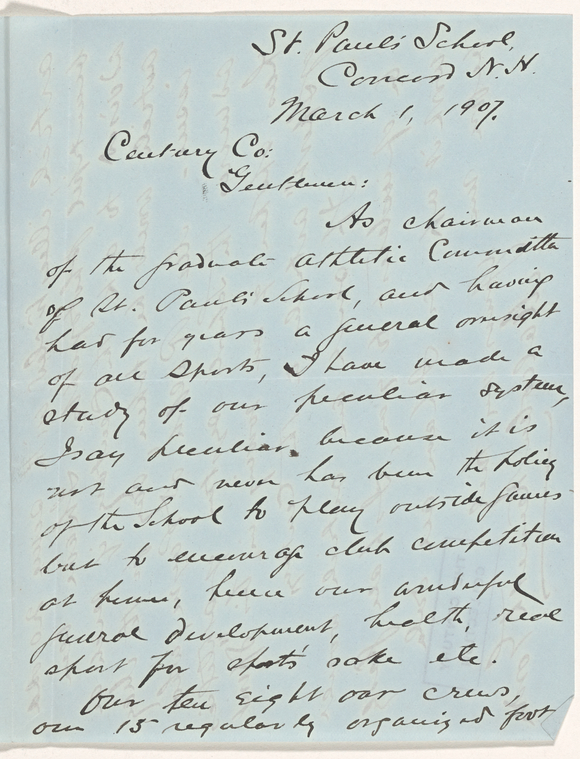 St. Paul's School,
Concord N. H.
March 1, 1907.
Century Co:
Gentlemen:
As chairman
of the graduate athletic Committee
of St. Paul's School, and having
had for years a general oversight
of all sports, I have made a
study of our peculiar system,
I say peculiar because it is
not and never has been the policy
of the School to play outside games
but to encourage club competition
at home, hence our wonderful
general development, health, real
sport for sport's sake etc.
Our ten eight oar crews,
our 15 regularly organized foot